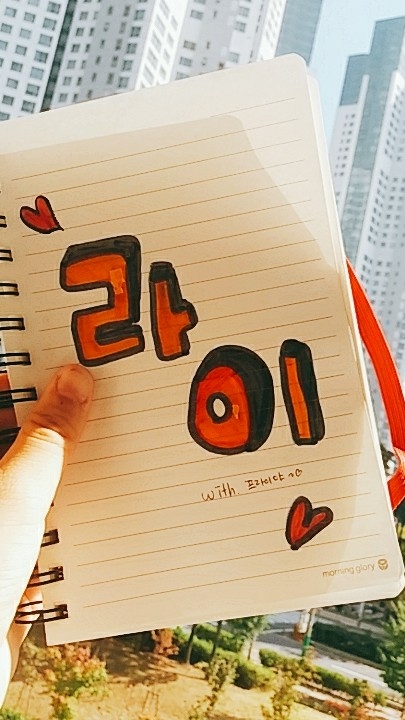 라
이
with. 프라이다 ~♡
morning glory